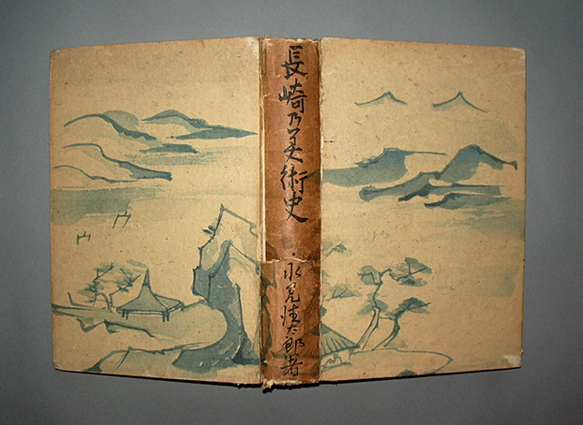 長崎乃美術史
永見徳太郎著